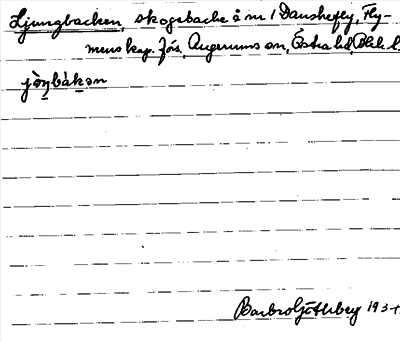 Ljungbacken, skogsbacke å nr 1 Danskefly, Fly-
mens kap. förs. Augerums sn, Östra hd, Blek. l.
jòŋbákən
Barbro Götherberg 193